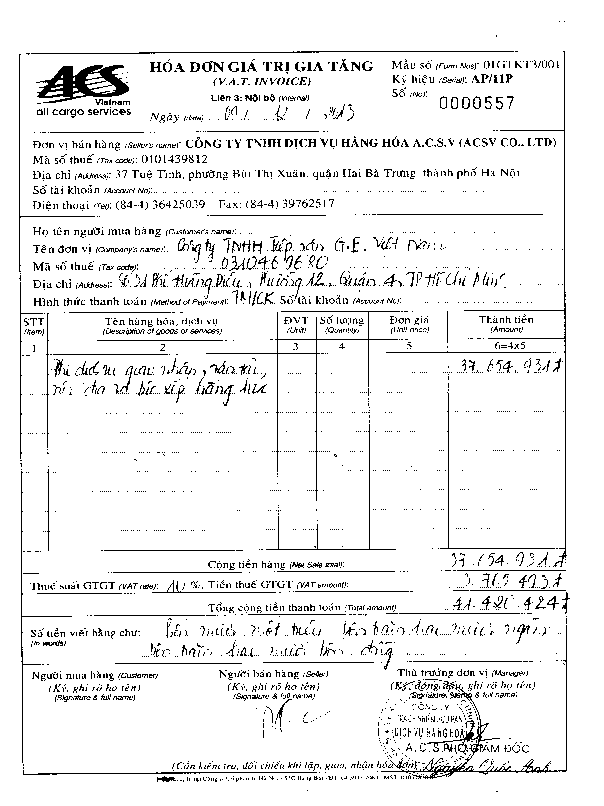 ACS
Vietnam
all cargo services
HÓA ĐƠN GIÁ TRỊ GIA TĂNG
(V.A.T. INVOICE)
Liên 3: Nội bộ (Internal)
Ngày (date)
Mẫu số (Form Nos): 01GTKT3/001
Ký hiệu (Serial): AP/11P
Số (No): 0000557
Đơn vị bán hàng (Seller's name): CÔNG TY TNHH DỊCH VỤ HÀNG HÓA A.C.S.V (ACSV CO., LTD)
Mã số thuế (Tax code): 0101439812
Địa chỉ (Address): 37 Tuệ Tĩnh, phường Bùi Thị Xuân, quận Hai Bà Trưng thành phố Hà Nội
Số tài khoản (Account No):
Điện thoại (Tel): (84-4) 36425039 Fax: (84-4) 39762517
Họ tên người mua hàng (Customer's name):
Tên đơn vị (Company's name): Công ty TNHH Tiếp vận G.E. Việt Nam
Mã số thuế (Tax code):
Địa chỉ (Address): Hoàng Diệu, Phường 12, Quận 4, TP Hồ Chí Minh
Hình thức thanh toán (Method of Payment): TM/CK Số tài khoản (Account No):
STT (Item) Tên hàng hóa, dịch vụ (Description of goods or services) ĐVT (Unit) Số lượng (Quantity) Đơn giá (Unit price) Thành tiền (Amount)
1 2 3 4 5 6=4x5
Phí dịch vụ giao nhận, vận tải, 37.654.931đ
bốc xếp hàng hóa
Cộng tiền hàng (Net Sale total): 37.654.931đ
Thuế suất GTGT (VAT rate): 10 %, Tiền thuế GTGT (VAT amount): 3.765.493đ
Tổng cộng tiền thanh toán (Total amount) 41.420.424đ
Số tiền viết bằng chữ: Bốn mươi mốt triệu bốn trăm hai mươi ngàn
(In words) bốn trăm hai mươi bốn đồng
Người mua hàng (Customer) Người bán hàng (Seller) Thủ trưởng đơn vị (Manager)
(Ký, ghi rõ họ tên) (Ký, ghi rõ họ tên) (Ký, đóng dấu, ghi rõ họ tên)
(Signature & full name) (Signature & full name) (Signature, Stamp & full name)
CÔNG TY
TRÁCH NHIỆM HỮU HẠN
DỊCH VỤ HÀNG HÓA
A.C.S
PHÓ GIÁM ĐỐC
(Cần kiểm tra, đối chiếu khi lập, giao, nhận hóa đơn)